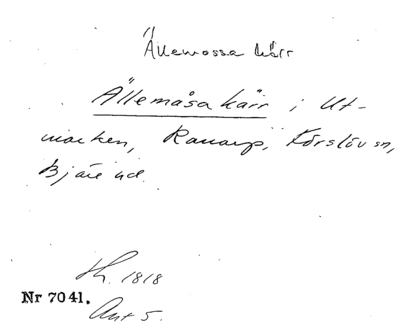 Ällemossa kärr
Ällemåsa kärr i Ut-
marken, Ranarp, Förslöv sn,
Bjäre hd.
Th. 1818
Nr 7041.
Ant 5.